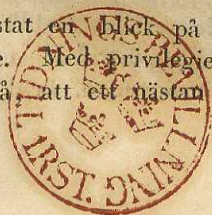 stat en blick på
e. Med privilegie
å, att ett nästan
TIDNINGS
1RST.